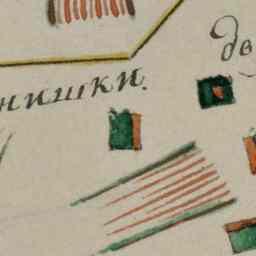 нишки.
дв